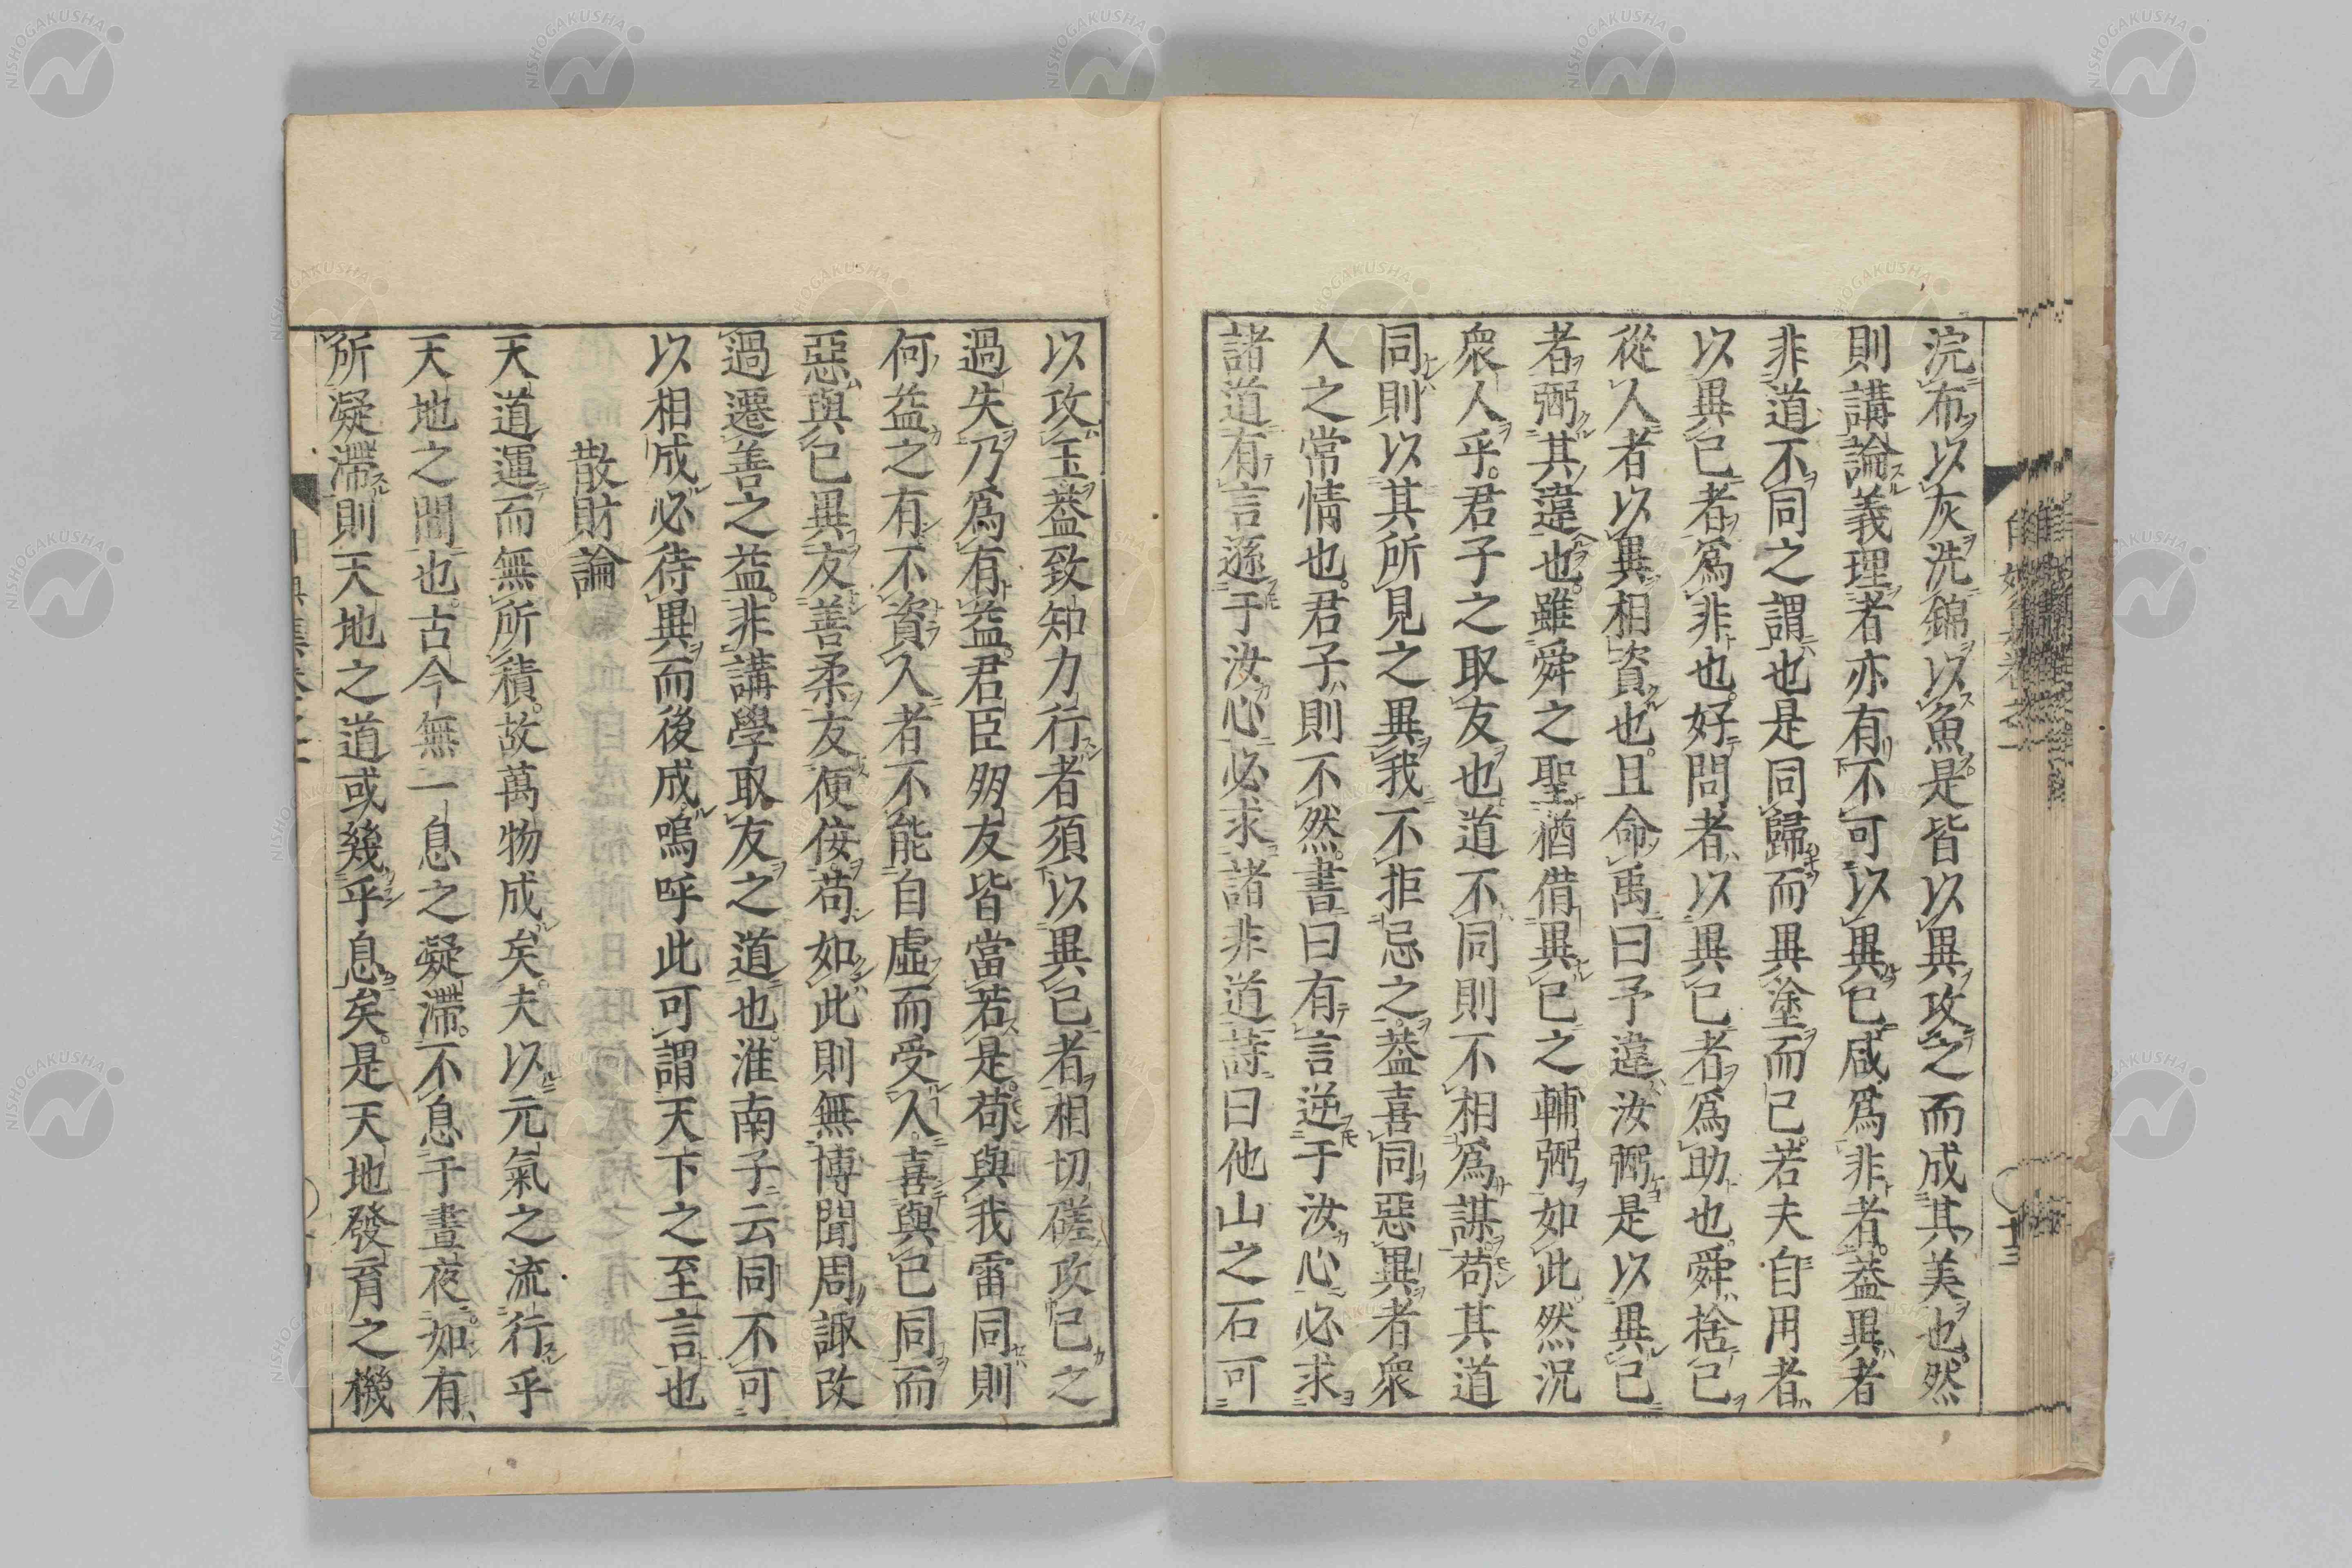 浣布以灰洗錦以魚是皆以異攻之而成其美也然
則講論義理者亦有不可以異已咸爲非者蓋異者
非道不同之謂也是同歸而異塗而已若夫自用者
以異已者爲非也好問者以異已者爲助也舜捨已
從人者以異相資也且命禹曰予違汝弼是以異已
者弼其違也雖舜之聖猶借異已之輔弼如此然況
衆人乎君子之取友也道不同則不相爲謀苟其道
同則以其所見之異我不拒忌之蓋喜同惡異者衆
人之常情也君子則不然書曰有言逆于汝心必求
諸道有言遜于汝心必求諸非道詩曰他山之石可
以攻玉蓋致知力行者須以異已者相切磋攻已之
過失乃爲有益君臣朋友皆當若是苟與我雷同則
何益之有不資人者不能自虛而受人喜與已同而
惡與已異友善柔友便佞苟如此則無博聞周諏改
過遷善之益非講學取友之道也淮南子云同不可
以相成必待異而後成嗚呼此可謂天下之至言也
散財論
天道運而無所積故萬物成矣夫以元氣之流行乎
天地之間也古今無一息之凝滯不息于晝夜如有
所凝滯則天地之道或幾乎息矣是天地發育之機
十三
NISHOGAKUSHA